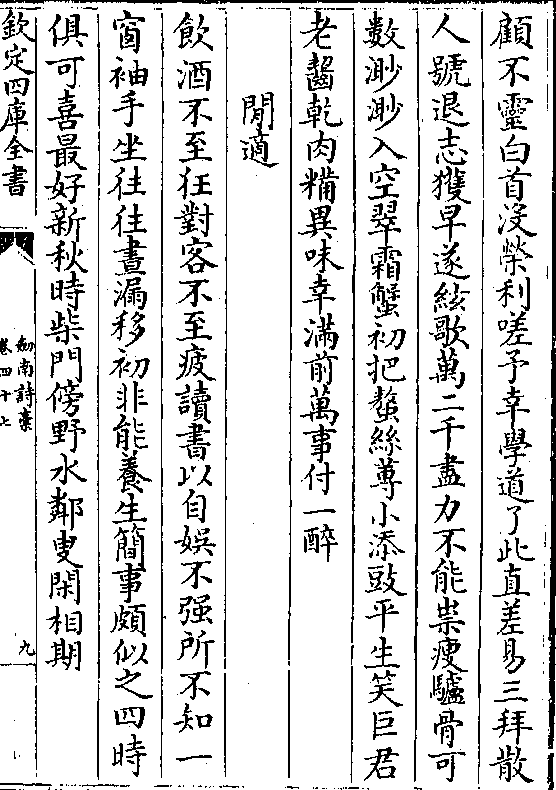 顧不靈白首沒榮利嗟予幸學道了此直差易三拜散
人號退志獲早遂絃歌萬二千盡力不能祟瘦驢骨可
数渺渺入空翠霜蟹初把螯絲蓴小添豉平生笑巨君
老齧乾肉糒異味幸滿前萬事付一醉
閒適
飲酒不至狂對客不至疲讀書以自娛不强所不知一
窗袖手坐往往晝漏移初非能養生簡事頗似之四時
俱可喜最好新秋時柴門傍野水鄰叟閑相期
欽定四庫全書
劍南詩稾
卷四十七
九